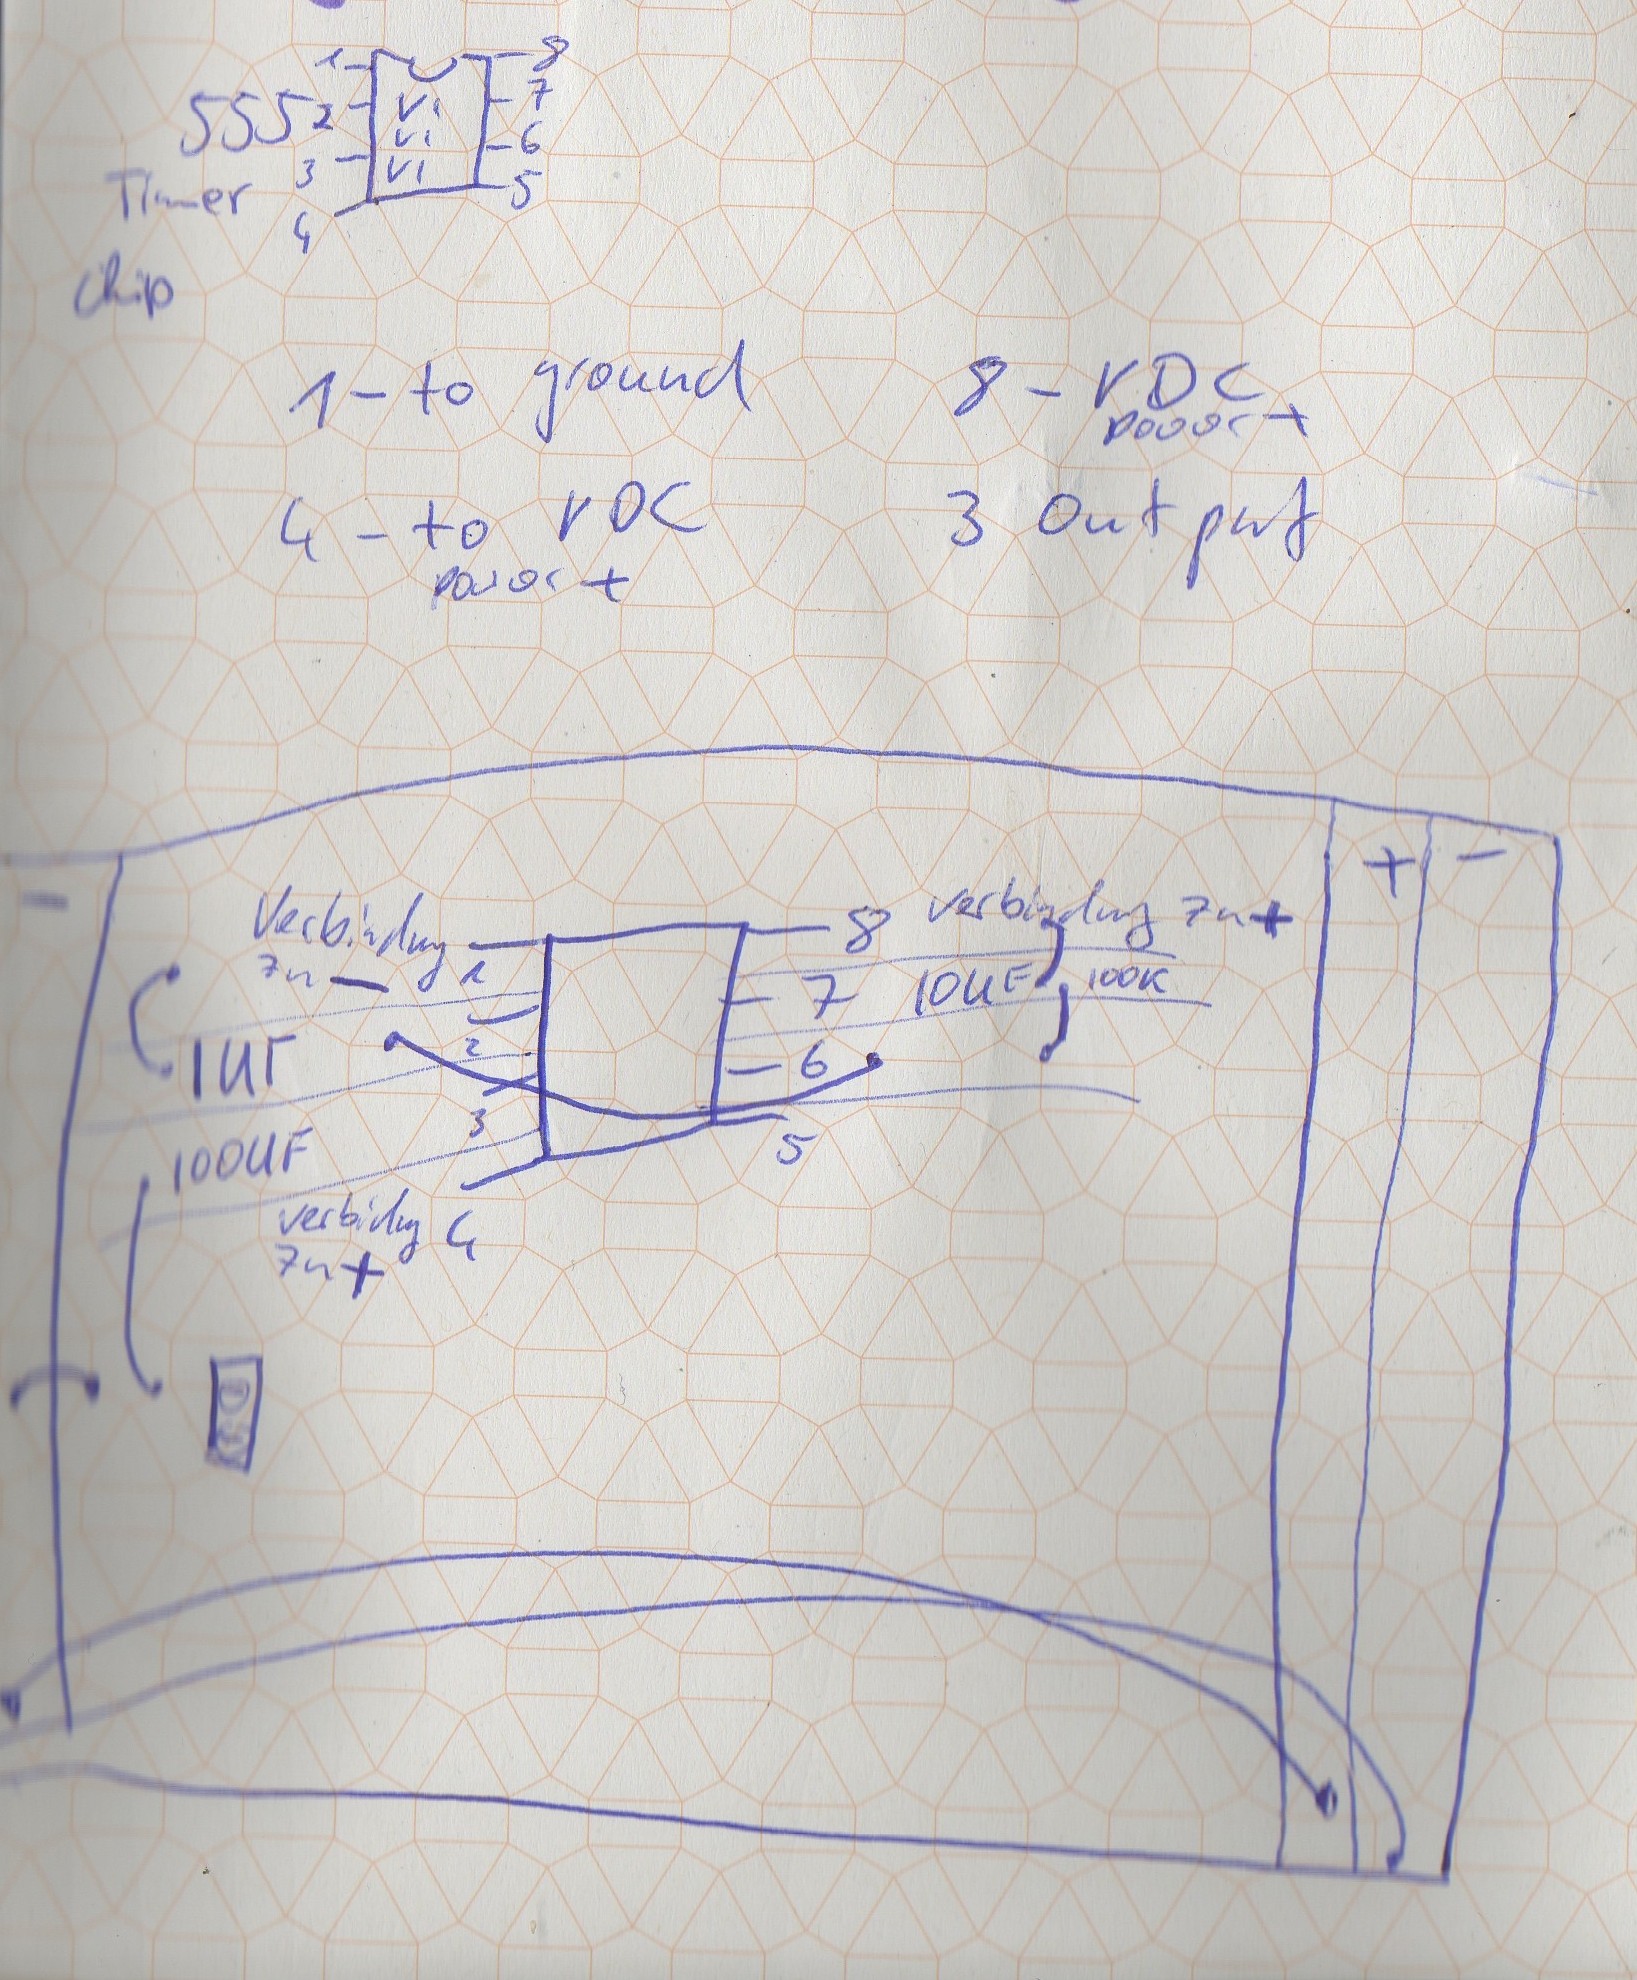 1 8
7
555 2 Vi
Vi 6
3 Vi
Timer 5
4
Chip
1 - to ground 8 - VDC
power +
4 - to VDC 3 Output
power +
+ -
-
Verbindung 8 verbindung zu +
zu - 1
7 10UF 100K
2
1UF 6
3
100UF 5
verbidung 4
zu +